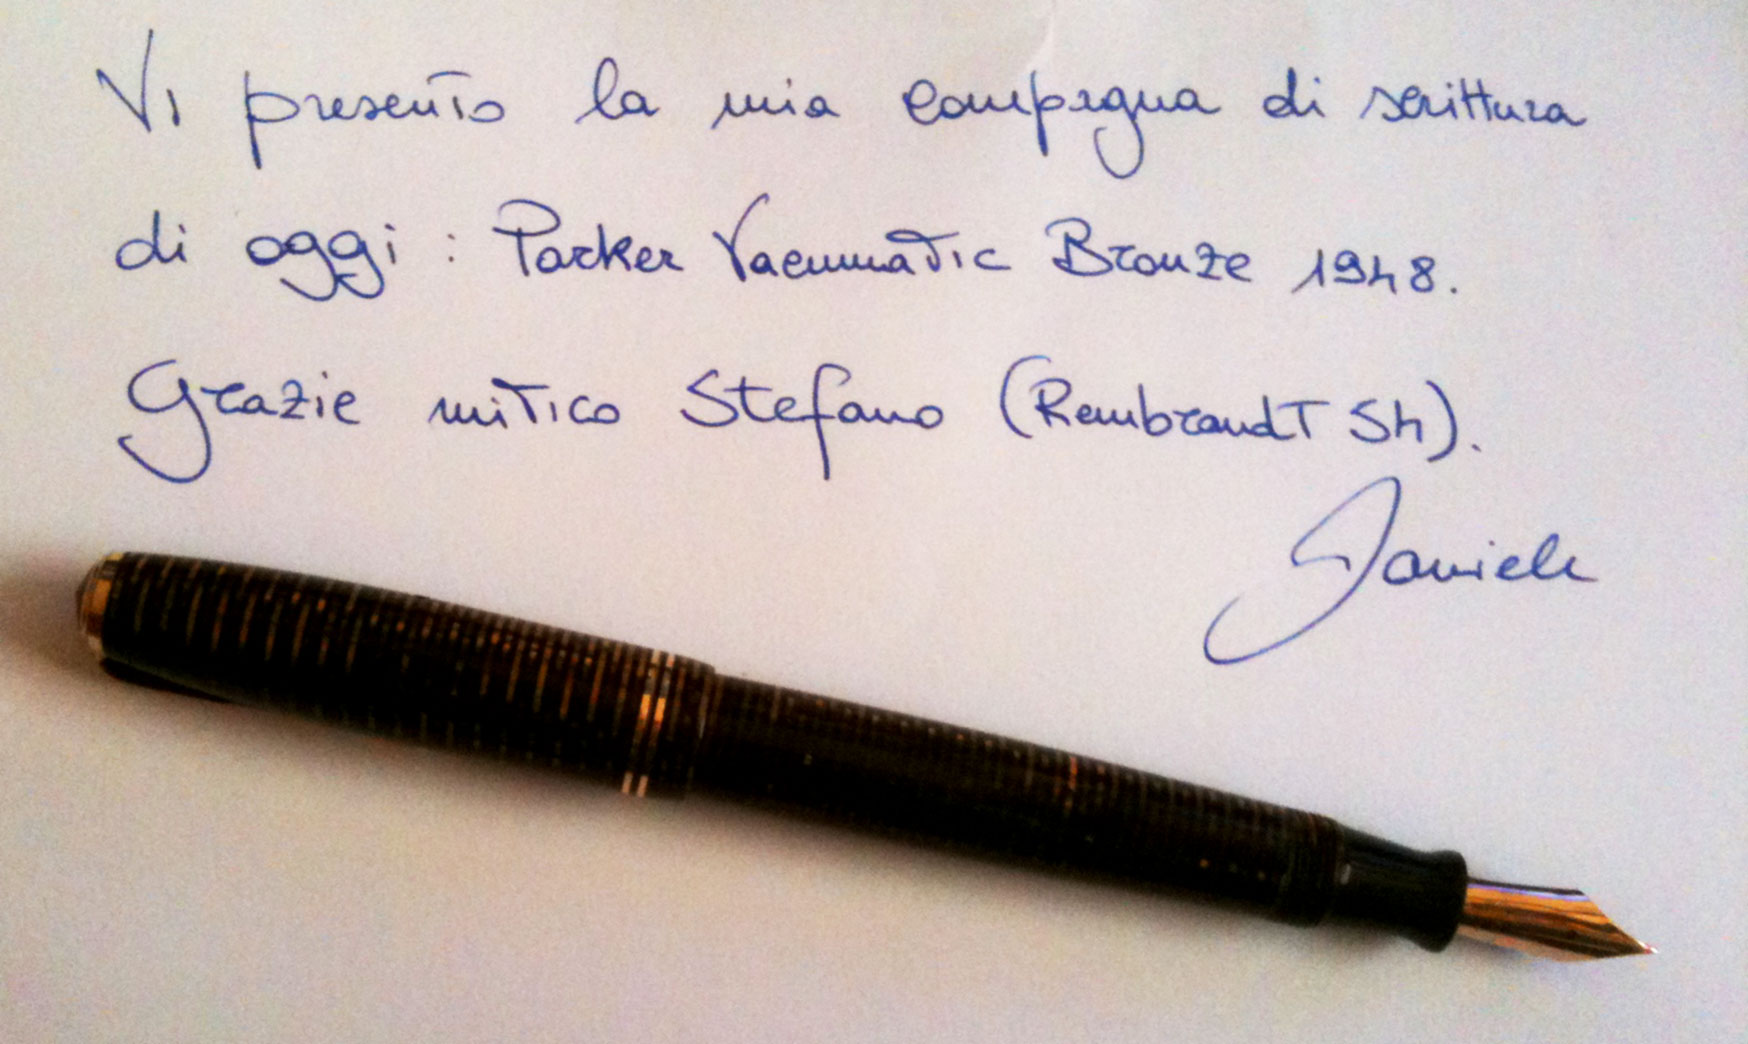 Vi presento la mia compagna di scrittura
di oggi : Parker Vacumatic Bronze 1948.
Grazie mitico Stefano (Rembrandt 54).
Daniele